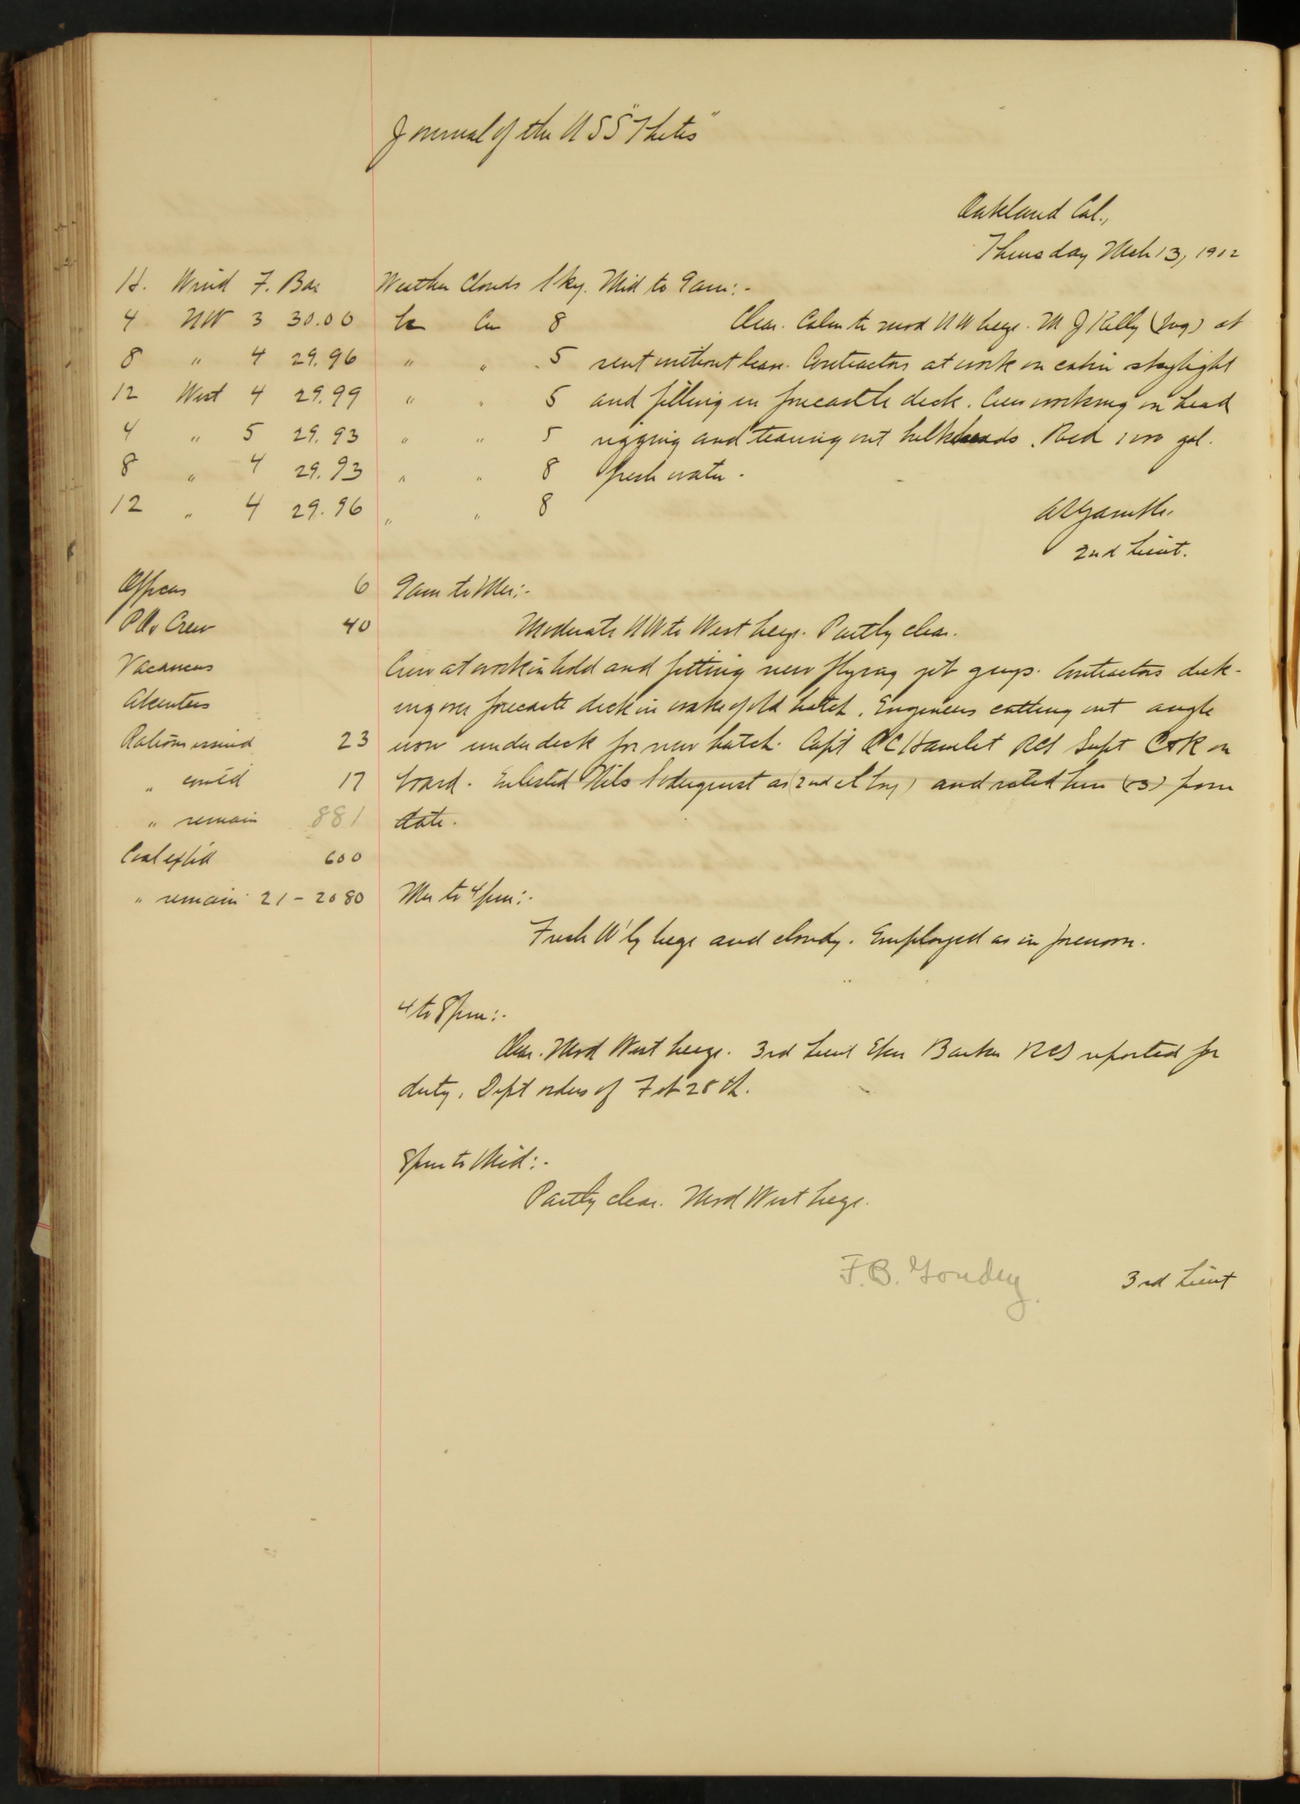 Journal of the U S S "Thetis"
Oakland Cal.,
Thursday Mch 13, 1902
H. Wind F. Bar Weather Clouds Sky. Mid to 9am:-
4 NW 3 30.00 bc Cu 8 Clear. Calm to mod NW breeze. M J Kelly (Boy) ab
8 " 4 29.96 " " 5 sent without leave. Contractors at work on cabin skylight
12 West 4 29.99 " " 5 and filling in forecastle deck. Crew working on head
4 " 5 29.93 " " 5 rigging and tearing out bulkheads. Recd 1000 gal.
8 " 4 29.93 " " 8 fresh water.
12 " 4 29.96 " " 8
2nd Lieut.
Officers 6 9am to Mer:-
P.O. & Crew 40 Moderate NW to West breeze. Partly clear.
Vacancies Crew at work in hold and fitting new flying jib guys. Contractors deck-
Absentees ing over forecastle deck in wake of old hatch. Engineers cutting out angle
Rations issued 23 iron under deck for new hatch. Capt O C Hamlet RCS Supt C & R on
" com'td 17 board. Enlisted Nils Soderquist as (2nd cl boy) and rated him (s) from
" remain 881 date.
Coal exp'd 600
" remain 21-2080 Mer to 4pm:-
Fresh W'ly breeze and cloudy. Employed as in forenoon.
4 to 8pm:-
Clear. Mod West breeze. 3rd Lieut Eben Barker RCS reported for
duty, Dept orders of Feb 28th.
8pm to Mid:-
Partly clear. Mod West breeze.
F.B. Goudey 3rd Lieut